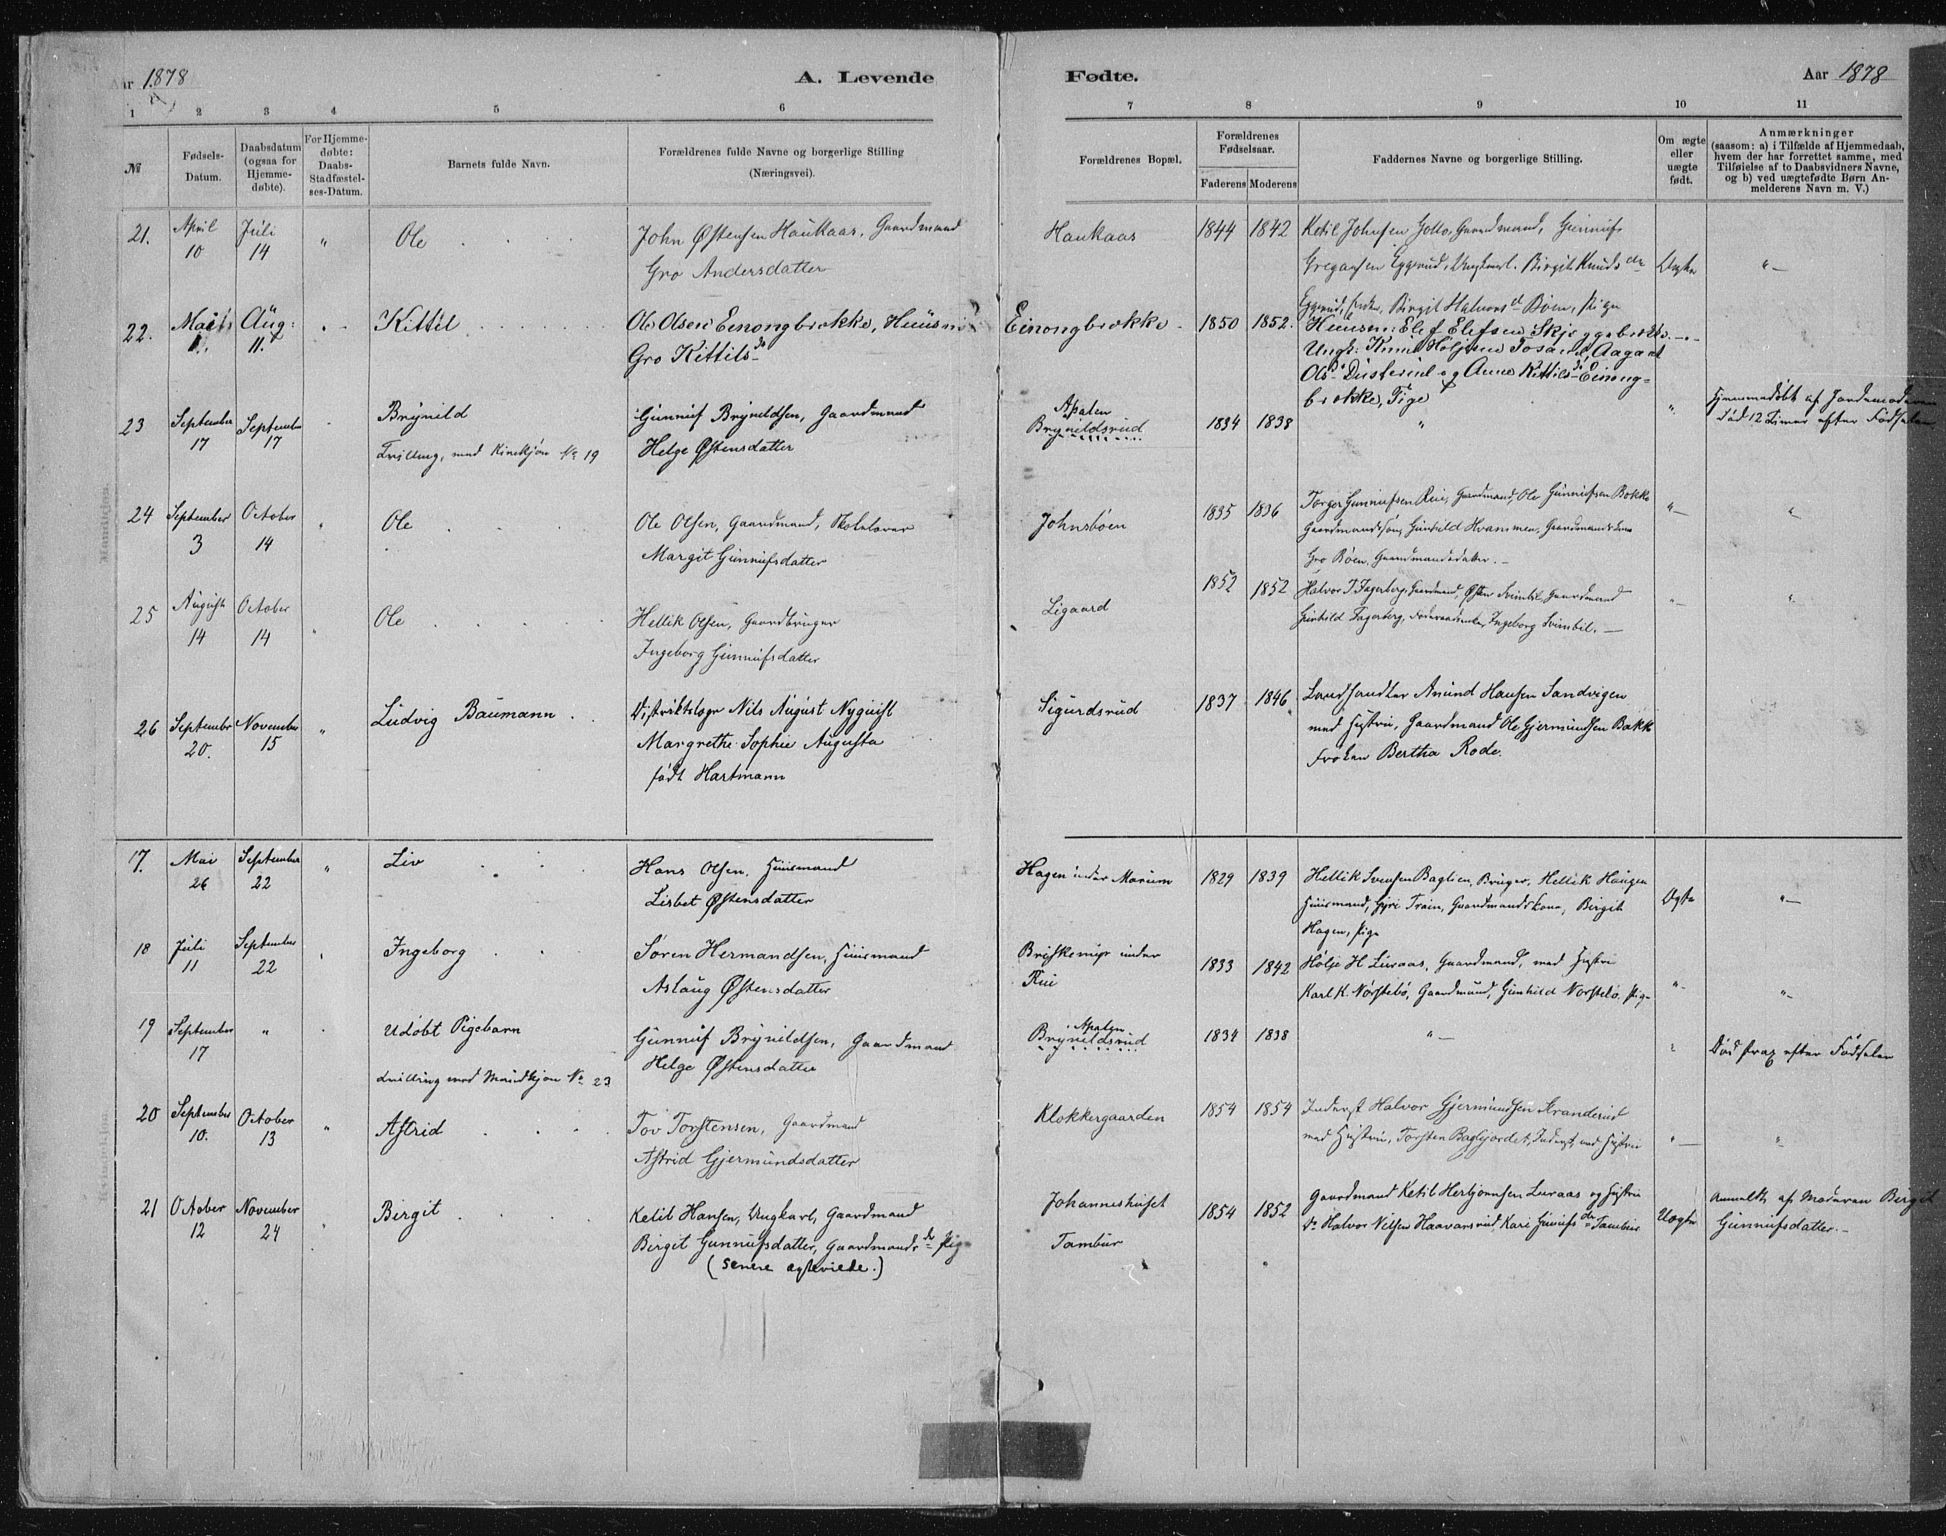 Aar 1878
A. Levende
Fødte.
Aar 1878
1 2 3 4 5 6 7 8 9 10 11
№
Fødsels-
Datum.
Daabsdatum
(ogsaa for
Hjemme-
døbte).
For Hjemme-
døbte:
Daabs-
Stadfæstel-
ses-Datum.
Barnets fulde Navn.
Forældrenes fulde Navne og borgerlige Stilling
(Næringsvei).
Forældrenes Bopæl.
Forældrenes
Fødselsaar.
Faderens Moderens
Faddernes Navne og borgerlige Stilling.
Om ægte
eller
uægte
født.
Anmærkninger
(saasom: a) i Tilfælde af Hjemmedaab,
hvem der har forrettet samme, med
Tilføielse af to Daabsvidners Navne,
og b) ved uægtefødte Børn An-
melderens Navn m. V.)
21. April 10 Juli 14 " Ole
John Østensen Haukaas, Gaardmand
Gro Andersdatter
Haukaas 1844 1842
Ketil Johnsen Gaardmand, Gunnuf
Eggerud, Ungkarl. Birgit Knudsdr
Eggerud, Birgit Halvorsd Bøen, Pige
Ægte "—
22. Aug: 11. Kittil
Ole Olsen Einongbrokke, Huusm
Gro Kittilsdr
Einongbrokke 1850 1852.
Huusm: Elef Elefsen Skjeggebrokke
Ungk: Aagaat
Ols- og Anne Kittilsd Einong-
brokke, Pige
23 September 17 September 17 Brynild
Tvilling, med Kinekjøn No 19
Gunnuf Brynildsen, Gaardmand
Helge Østensdatter
Apalen
Brynildsrud 1834 1838 " "
Hjemmedøbt af Jordemoderen
Død 12 Timer efter Fødselen
24 September 3 October 14 " Ole
Ole Olsen, Gaardmand, Skolelærer
Margit Gunnufsdatter
Johnsbøen 1835 1836
Torger Gunnufsen Rui, Gaardmand, Ole Gunnufsen Bakke
Gaardmandssøn, Gunhild Hvammen, Gaardmandskone
Gro Bøen, Gaardmandsdatter. —
"— "
25 August 14 October 14 " Ole
Hellik Olsen, Gaardbruger
Ingeborg Gunnufsdatter
Ligaard 1852 1852
Halvor T Fagerberg, Gaardmand, Østen Svimbil Gaardmand
Gunhild Fagerberg, Ingeborg Svimbil. —
"— "
26 September 20. November 15 " Ludvig Baumann
Distriktslæge Nils August Nyquist
Margrethe Sophie Augusta
født Hartmann
Sigurdsrud 1837 1846
Landhandler Anund Hansen Sandvigen
med Hustru, Gaardmand Ole Gjermundsen Bakk
Frøken Bertha Rode.
17. Mai 26 September 22 " Liv
Hans Olsen, Huusmand
Lisbet Østensdatter
Hagen under Marum 1829 1839
Hellik Svensen Baglien, Bruger, Hellik Haugen
Huusmand, Guri Traen, Gaardmandskone, Birgit
Hagen, Pige
Ægte "—
18 Juli 11 September 22 Ingeborg
Søren Hermandsen, Huusmand
Aslaug Østensdatter
under
Rui 1833 1842
Holje H Luraas, Gaardmand, med Hustru
Karl K. Norstebø, Gaardmand, Gunhild Norstebø, Pige
"— "—
19 September 17 " Udøbt Pigebarn
Tvilling med Mandkjøn No 23
Gunnuf Brynildsen, Gaardmand
Helge Østensdatter
Apalen
Brynildsrud 1834 1838 "— "
Død strax efter Fødselen
20 September 10. October 13 " Astrid
Tov Torstensen, Gaardmand
Astrid Gjermundsdatter
Klokkergaarden 1854 1854
Inderst Halvor Gjermundsen Stranderud
med Hustru, Torsten Bagljordet, Inderst, med Hustru
"— "
21 October 12 November 24 " Birgit
Ketil Hansen, Ungkarl, Gaardmand
Birgit Gunnufsdatter, Gaardmandsdr Pige
(senere ægteviede.)
Johanneshuset
Tambur 1854 1852
Gaardmand Ketil Herbjørnsen Luraas og Hustru
Do Halvor Nilsen Haavarsrud, Kari dr Tambur
Uægte
Anmeldt af Moderen Birgit
Gunnufsdatter. —